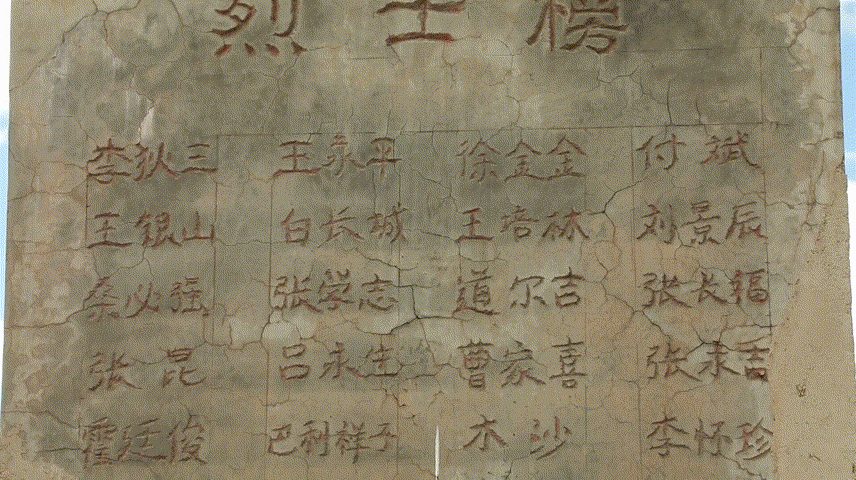 烈士榜
李狄三 王永平 徐金金 付斌
王银山 白长城 王培林 刘景辰
桑必强 张学志 道尔吉 张长辐
张昆 吕永生 曹家喜 张末吾
霍廷俊 巴利祥子 木沙 李怀珍